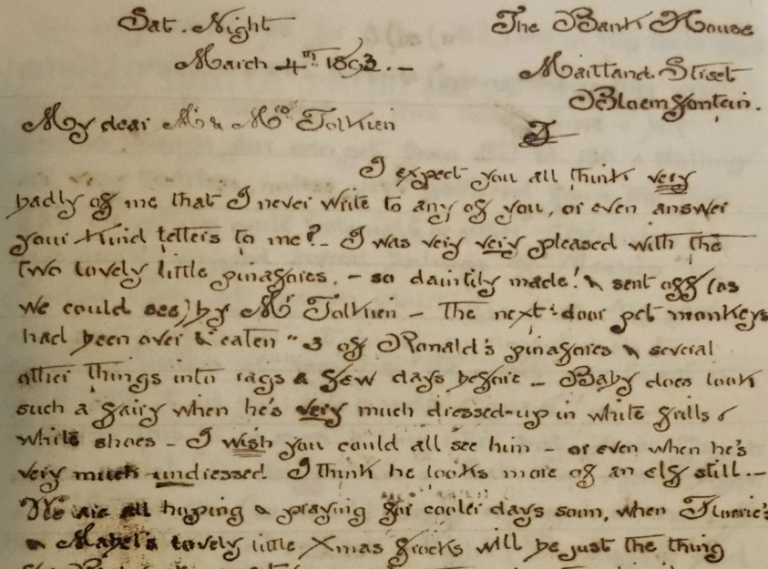 Sat. Night The Bank House
March 4th 1893. – Maitland. Street
Bloemfontein.
My dear Mr & Mrs Tolkien
I expect you all think very
badly of me that I never write to any of you, or even answer
your kind letters to me? – I was very very pleased with the
two lovely little pinafores, – so daintily made! & sent off (as
we could see) by Mr Tolkien – The next-door pet monkeys
had been over & eaten " 3 of Ronald's pinafores & several
other things into rags a few days before – Baby does look
such a fairy when he's very much dressed-up in white frills &
white shoes – I wish you could all see him – or even when he's
very much undressed I think he looks more of an elf still. –
We are all hoping & praying for cooler days soon, when Florrie's
& Mabel's lovely little Xmas frocks will be just the thing